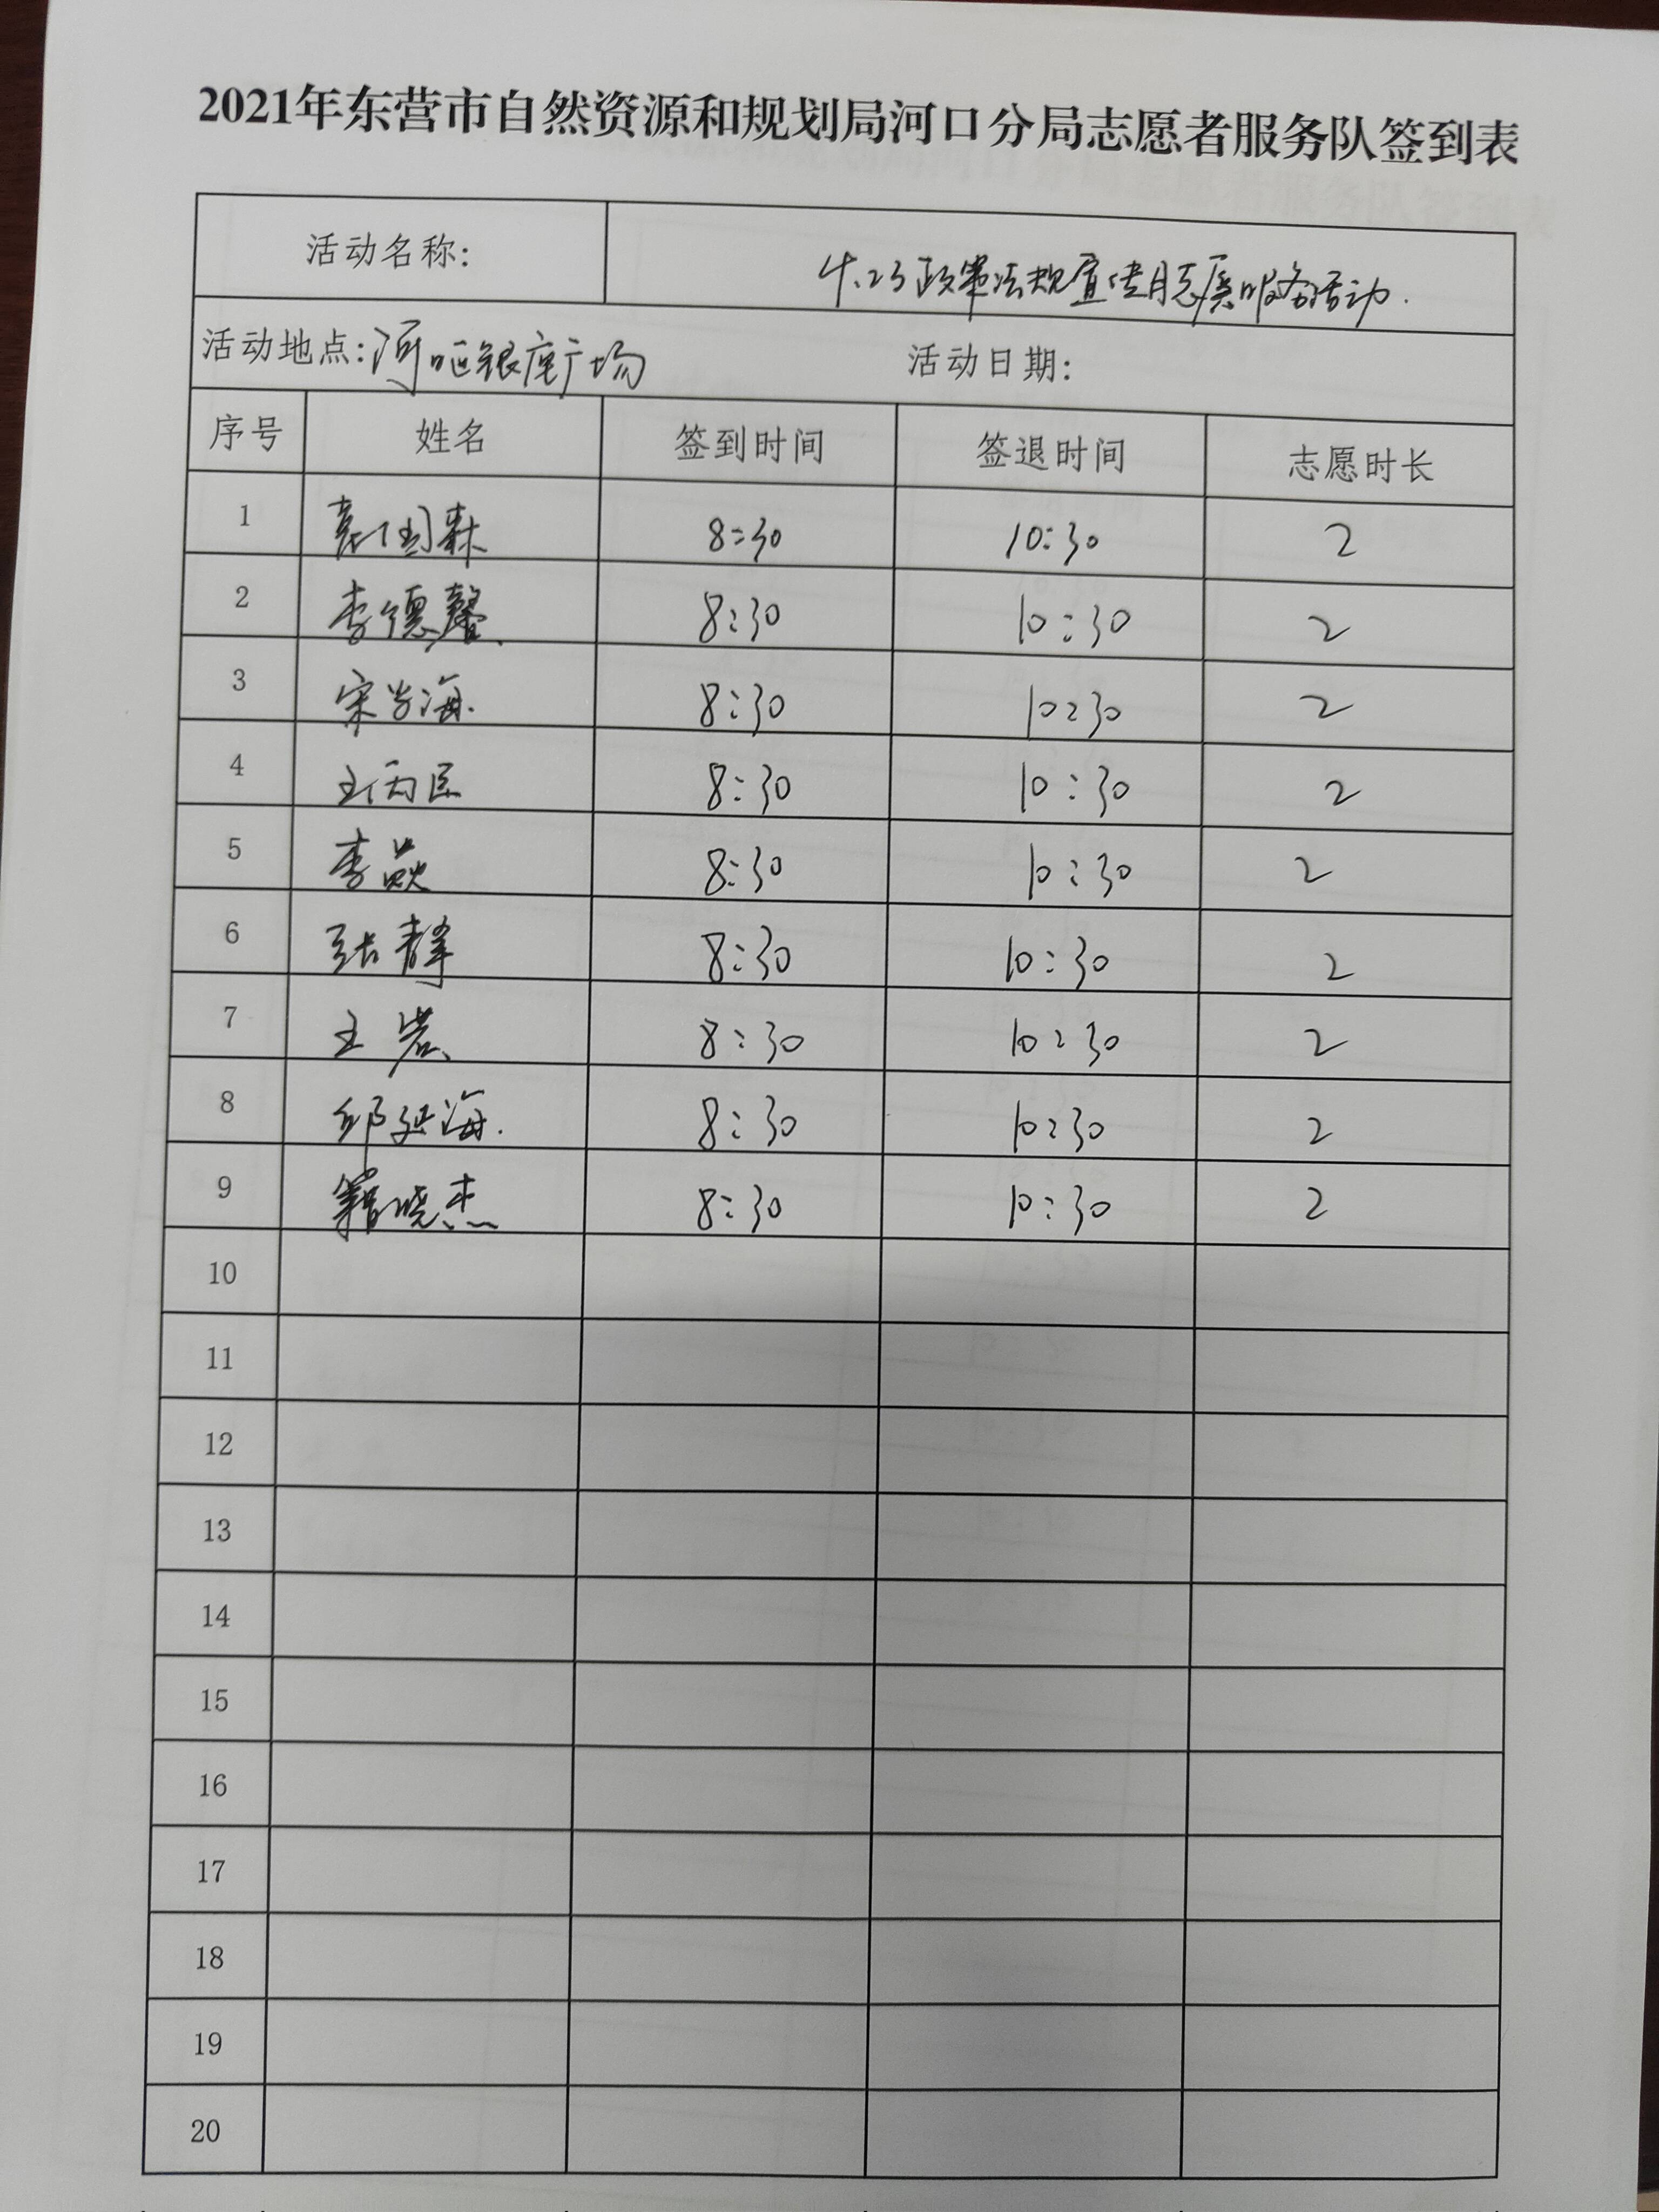 2021年东营市自然资源和规划局河口分局志愿者服务队签到表
活动名称: 4.23政策法规宣传月志愿服务活动.
活动地点:河口区银座广场 活动日期:
序号 姓名 签到时间 签退时间 志愿时长
1 袁国森 8:30 10:30 2
2 李德馨 8:30 10:30 2
3 宋学海 8:30 10:30 2
4 8:30 10:30 2
5 李焱 8:30 10:30 2
6 张静 8:30 10:30 2
7 王岩 8:30 10:30 2
8 邱延海 8:30 10:30 2
9 籍晓杰 8:30 10:30 2
10
11
12
13
14
15
16
17
18
19
20